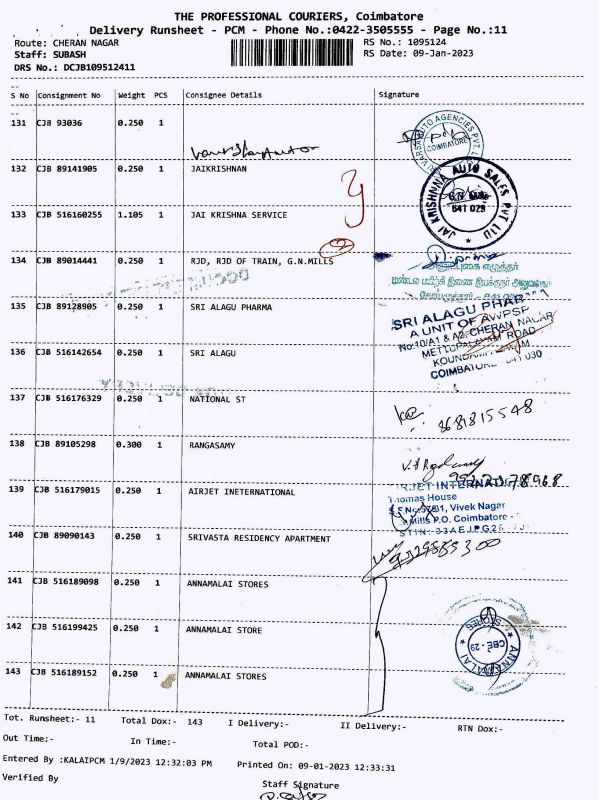 THE PROFESSIONAL COURIERS, Coimbatore
Delivery Runsheet - PCM - Phone No.:0422-3505555 - Page No.:11
Route: CHERAN NAGAR RS No.: 1095124
Staff: SUBASH RS Date: 09-Jan-2023
DRS No.: DCJB109512411
S No Consignment No Weight PCS Consignee Details Signature
131 CJB 93036 0.250 1
COIMBATORE
132 CJB 89141905 0.250 1 JAIKRISHNAN
JAI KRISHNNA AUTO SALES PVT LTD
G.N. Mills
641 029
133 CJB 516160255 1.105 1 JAI KRISHNA SERVICE
134 CJB 89014441 0.250 1 RJD, RJD OF TRAIN, G.N.MILLS
135 CJB 89128905 0.250 1 SRI ALAGU PHARMA
SRI ALAGU PHAR
A UNIT OF AWPSP
No:10/A1 & A2, CHERAN NAGAR
METTUPALAYAM ROAD
COIMBATORE - 641 030
136 CJB 516142654 0.250 1 SRI ALAGU
137 CJB 516176329 0.250 1 NATIONAL ST
8681815548
138 CJB 89105298 0.300 1 RANGASAMY
139 CJB 516179015 0.250 1 AIRJET INETERNATIONAL
Thomas House
Vivek Nagar
Mills P.O. Coimbatore -
140 CJB 89090143 0.250 1 SRIVASTA RESIDENCY APARTMENT
141 CJB 516189098 0.250 1 ANNAMALAI STORES
142 CJB 516199425 0.250 1 ANNAMALAI STORE
ANNAMALAI STORES
CBE - 29
143 CJB 516189152 0.250 1 ANNAMALAI STORES
Tot. Runsheet:- 11 Total Dox:- 143 I Delivery:- II Delivery:- RTN Dox:-
Out Time:- In Time:- Total POD:-
Entered By :KALAIPCM 1/9/2023 12:32:03 PM Printed On: 09-01-2023 12:33:31
Verified By Staff Signature